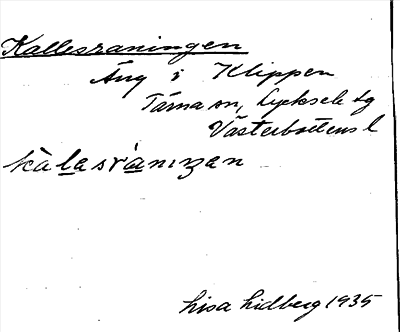 Kallesraningen
Äng i Klippen
Tärna sn, Lycksele tg
Västerbottens l
kàlasránıŋan
Lisa Lidberg 1935